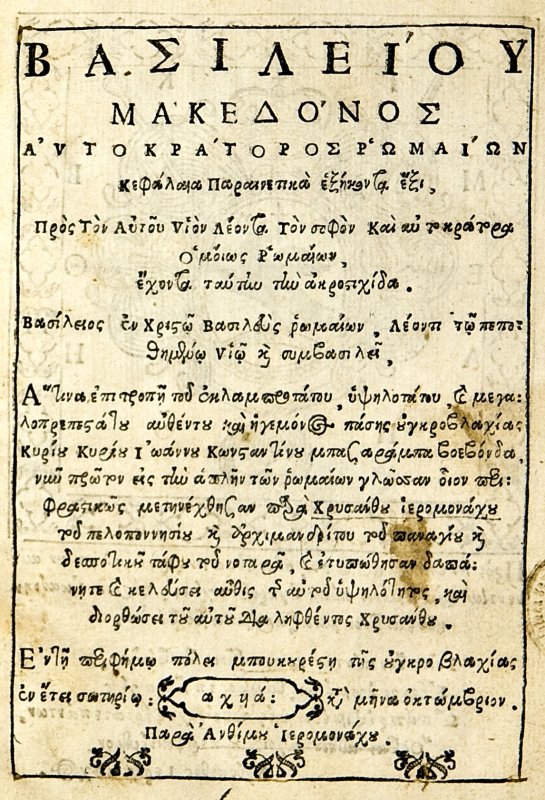 ΒΑΣΙΛΕΊΟΥ
ΜΑΚΕΔΌΝΟΣ
ἈΥΤΟΚΡΆΤΟΡΟΣ ῬΩΜΑΊΩΝ
Κεφάλαια Παραινετικὰ ἑξήκοντα ἕξι,
Πρὸς Τὸν Αὐτοῦ Υἱὸν Λέοντα Τὸν σοφὸν Καὶ αὐτοκράτορα
Ὁμοίως Ῥωμαίων,
ἔχοντα ταύτην τὴν ἀκροστιχίδα.
Βασίλειος ἐν Χριστῷ Βασιλεὺς ῥωμαίων, Λέοντι τῷ πεπο:
θημένῳ Υἱῷ κὶ συμβασιλεῖ,
Ἅτινα ἐπιτροπῇ τοῦ ἐκλαμπροτάτου, ὑψηλοτάτου, ϗ μεγα:
λοπρεπεστάτου αὐθέντου καὶ ἡγεμόνος πάσης οὐγκροβλαχίας
Κυρίου Κυρίου Ἰωάννου Κωνσταντίνου μπασαράμπα βοεβόνδα,
νῦν πρῶτον εἰς τὴν ἁπλῆν τῶν ῥωμαίων γλῶσσαν οἷον περι:
φραστικῶς μετηνέχθησαν παρὰ Χρυσάνθου ἱερομονάχου
τοῦ πελοποννησίου κὶ ἀρχιμανδρίτου τοῦ παναγίου κὶ
δεσποτικοῦ τάφου τοῦ νοταρᾶ, ϗ ἐτυπώθησαν δαπά:
νῃ τε ϗ κελεύσει αὖθις τῆς αὐτοῦ ὑψηλότητος, καὶ
διορθώσει τοῦ αὐτοῦ Διαληφθέντος Χρυσάνθου.
Ἐν τῇ περιφήμῳ πόλει μπουκουρέστῃ τῆς οὐγκροβλαχίας
ἐν ἔτει σωτηρίῳ: αχϟά: κατὰ μῆνα ὀκτώμβριον.
Παρὰ Ἀνθίμου Ἱερομονάχου.